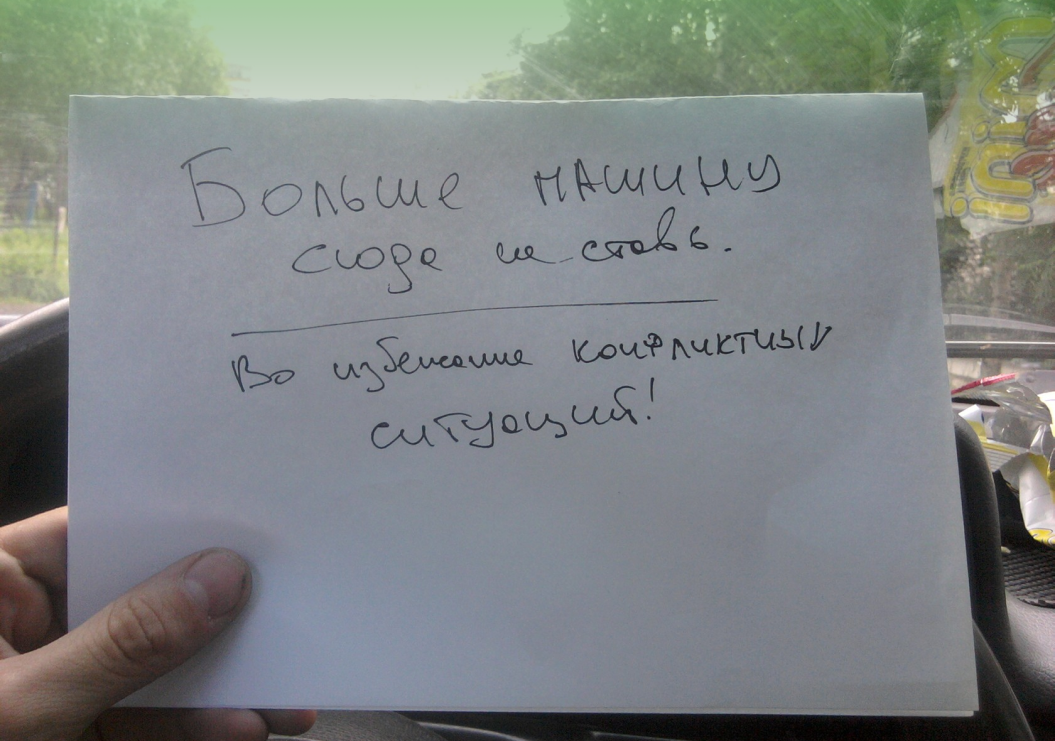 Больше машину
сюда не ставь.
Во избежание конфликтных
ситуаций!